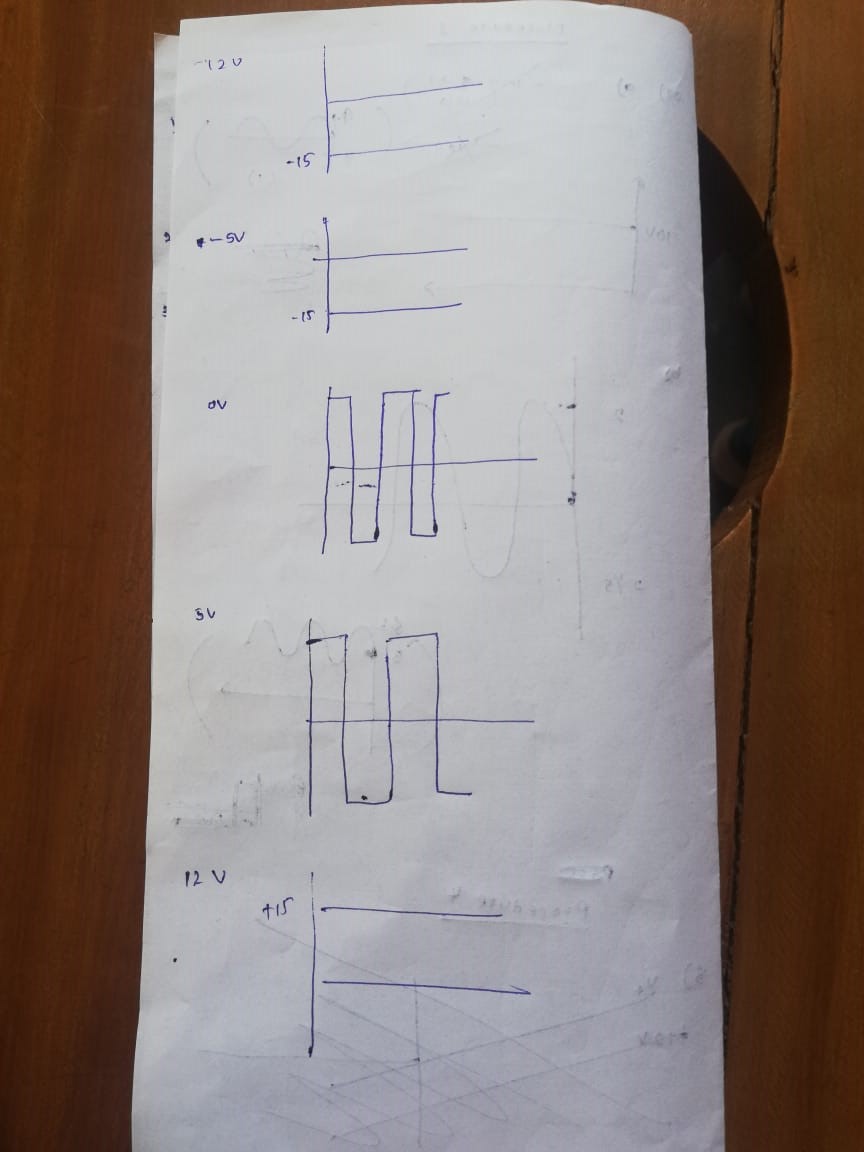 -12V
-15
-5V
-15
0V
5V
12V
+15